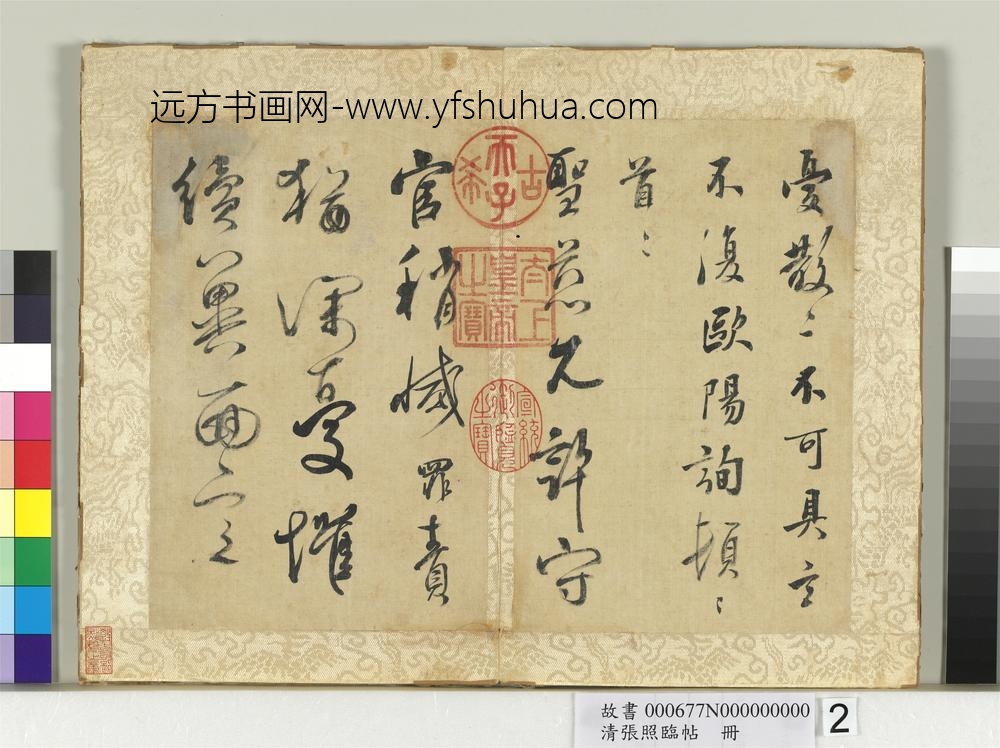 远方书画网-www.yfshuhua.com
憂散〻不可具言
不復歐陽詢頓〻
首〻
聖慈允許守
官稍減罪責
猶深憂懼
續冀面言之
古希天子
太上皇帝之寶
宣統御覽之寶
故書 000677N000000000
清張照臨帖 冊
2